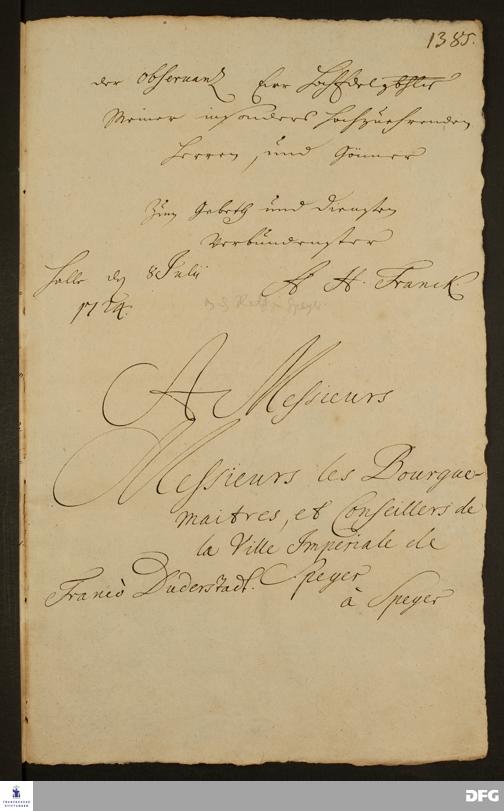 1385.
der Observanz Euer
Meiner insonders hochzuehrenden
Herren, und Gönner
Zum Gebeth und Diensten
Verbundenster
Halle den 8 Julii
1724.
A H. Franck.
A Messieurs
Messieurs les Bourgue-
maitres, et Conseillers de
la Ville Imperiale de
Speyer
Franco Duderstadt.
à Speyer
FRANCKESCHE STIFTUNGEN
DFG